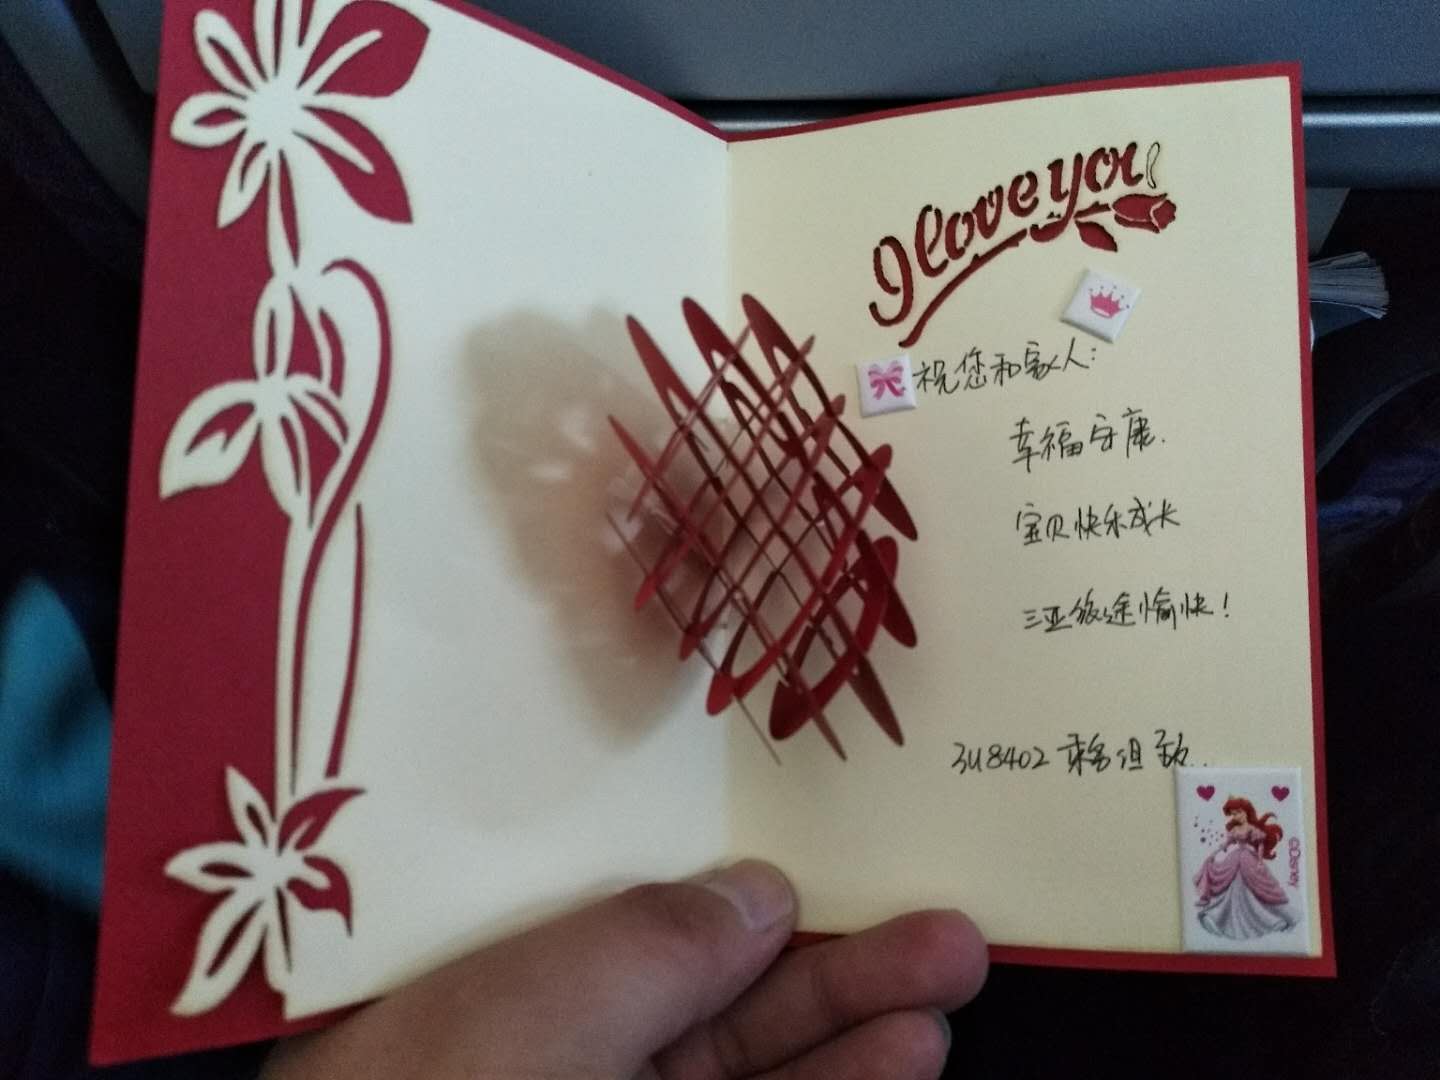 I love you
祝您和家人：
幸福安康.
宝贝快乐成长
三亚旅途愉快！
3U8402 乘务组 致..
©Disney